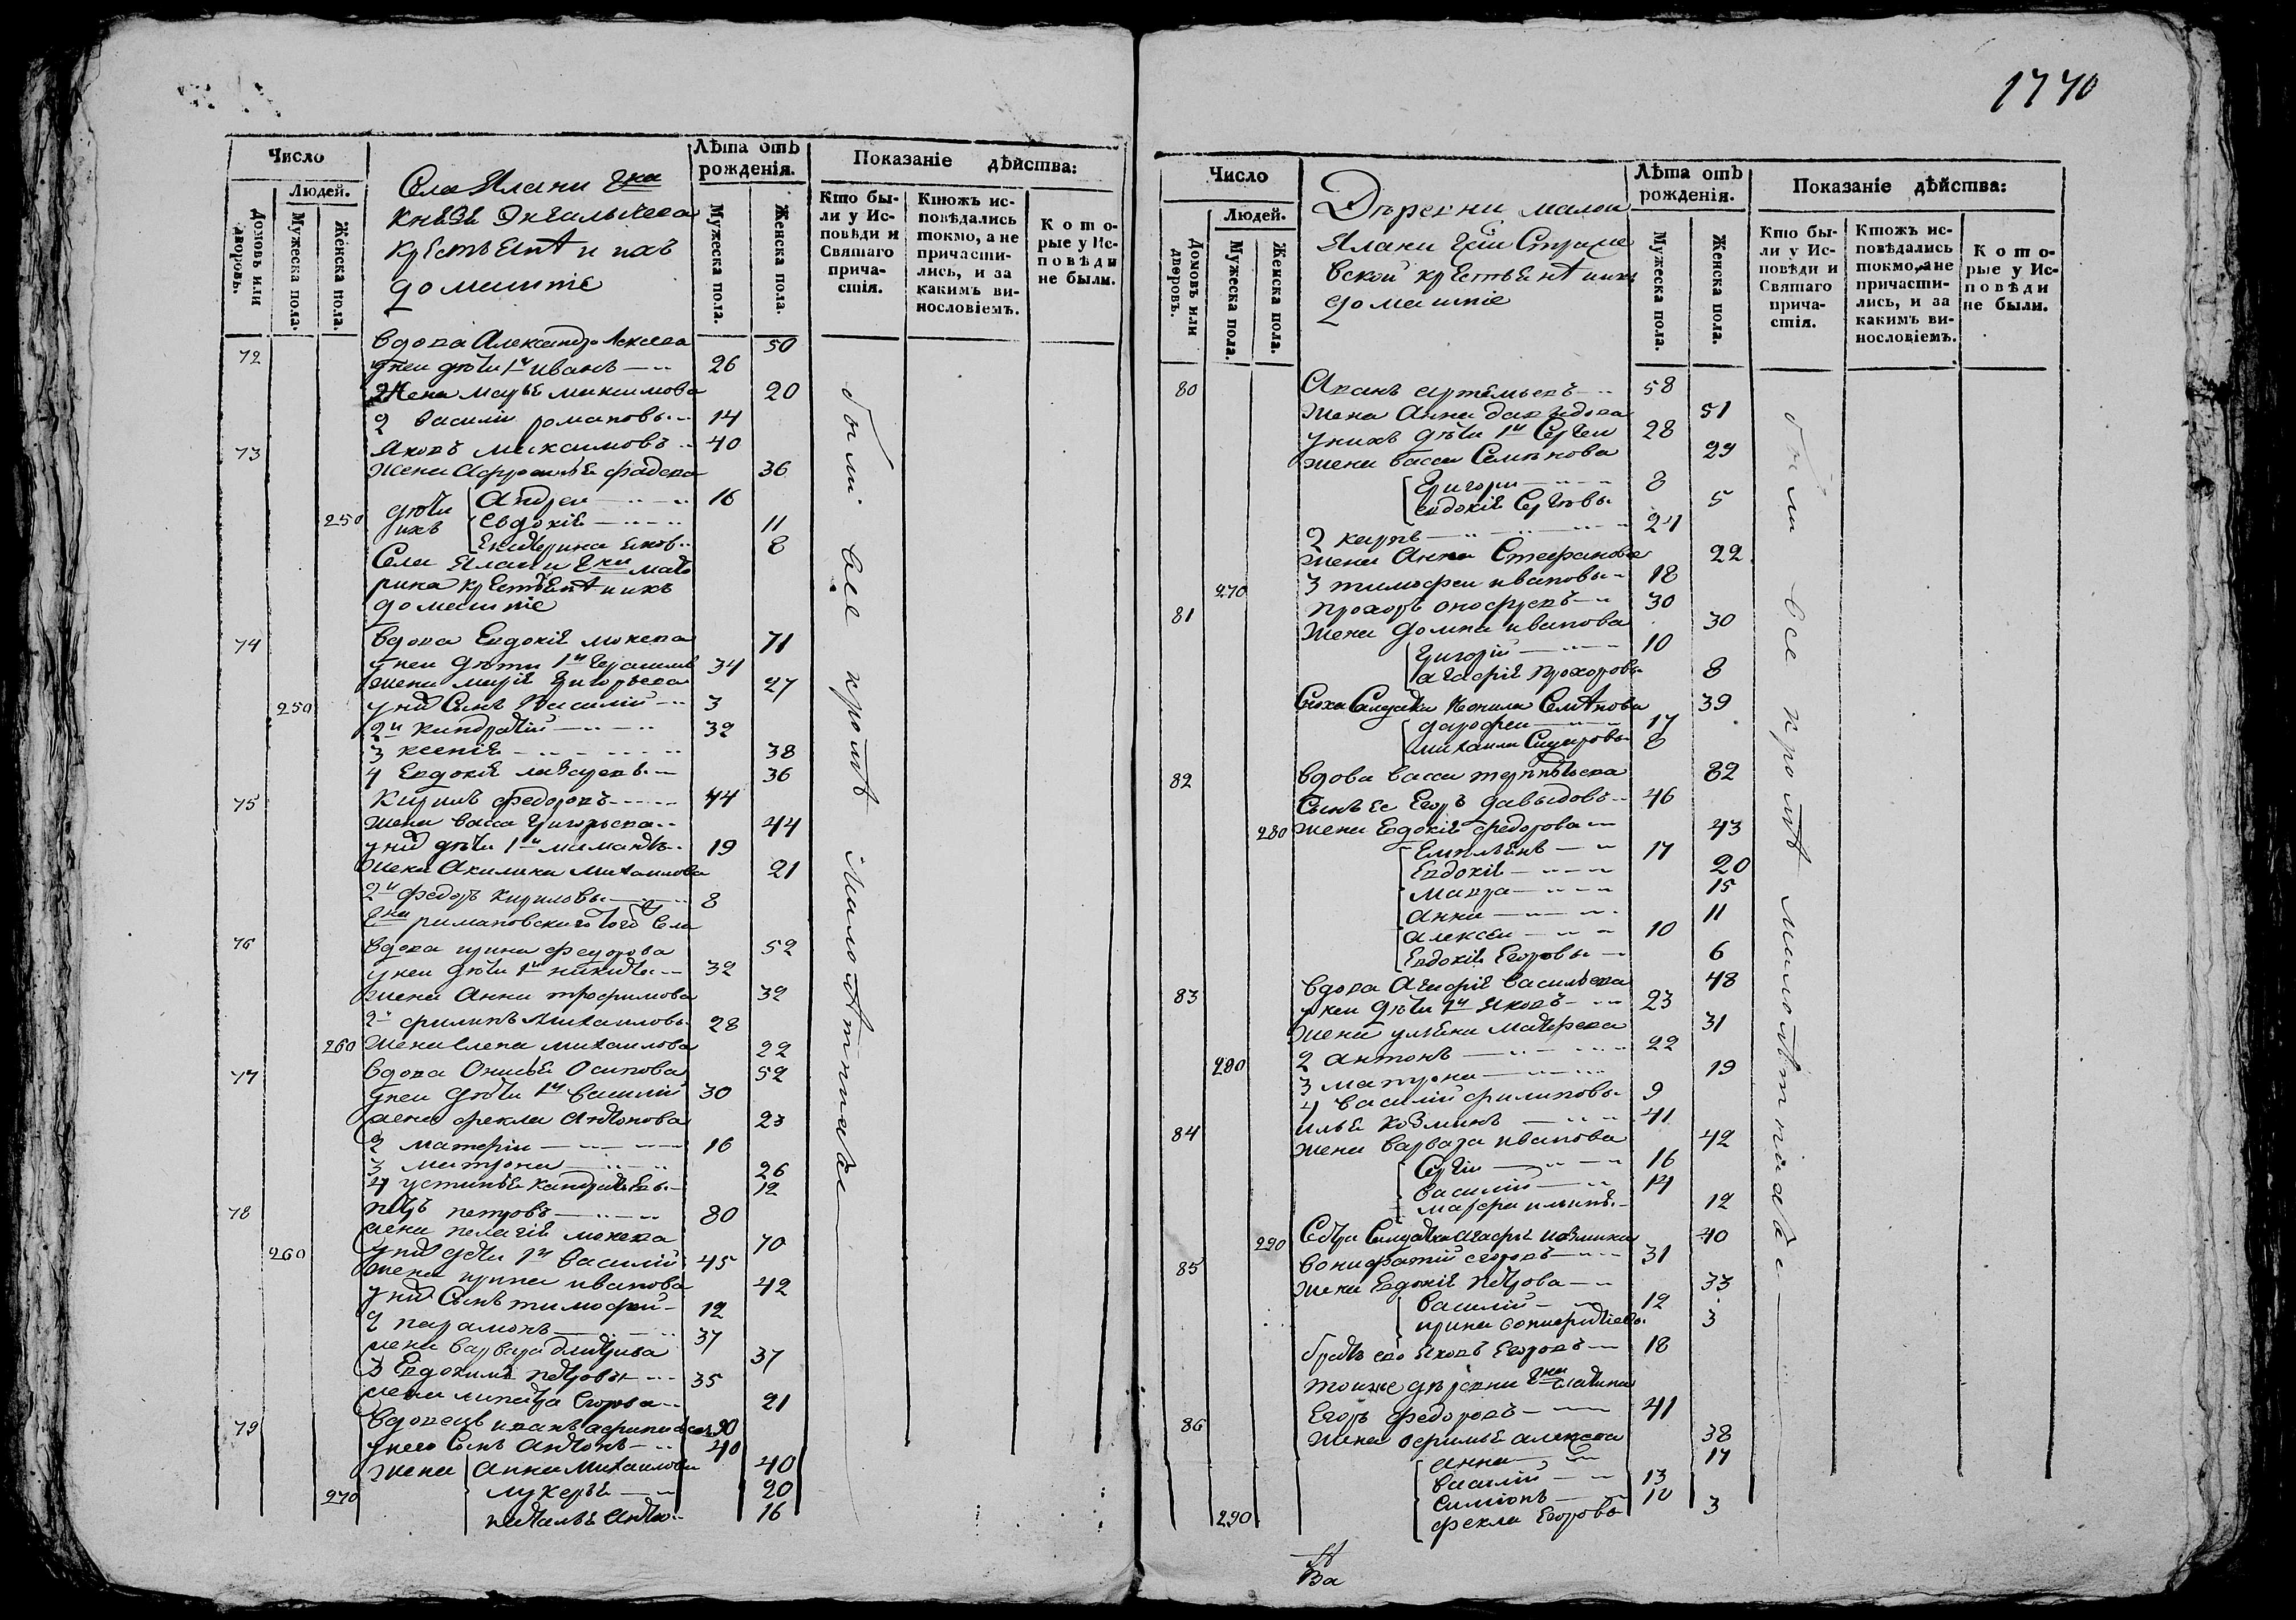 Число
Людей.
Домовъ или дворовъ.
Мужеска пола.
Женска пола.
Села Ялани Гна
Князя Энгалычева
крестьянѣ и ихъ
домашніе
Лѣта отъ рожденія.
Мужеска пола.
Женска пола.
Показаніе дѣйства:
Кто были у Исповѣди и Святаго причастія.
Ктожъ исповѣдались токмо, а не причастились, и за какимъ винословіемъ.
Которые у Исповѣди не были.
72 вдова Александра Алексеева 50
у неи дѣти 1й иванъ 26
Жена марья максимова 20
2 василіи романовы 14
73 Яковъ максимовъ 40
жена Афросинья фадеева 36
250 дѣти ихъ Андреи 16
Евдокія 11
Екатерина яков. 8
Села Ялани Гжи
крестьянѣ и ихъ
домашніе
74 вдова Евдокія мокеева 71
у неи дѣти 1й Герасимъ 34
жена марія григорьева 27
250 у нихъ Сынъ Василіи 3
2й киндратіи 32
3 ксенія 38
4 Евдокія лазаревы 36
75 Кирилъ федоровъ 44
жена васса григорьева 44
у нихъ дѣти 1й 19
жена Акилина михаилова 21
2й федоръ кириловы 8
Гжи римановскаго того Села
76 вдова ирина федорова 52
у неи дѣти 1й никита 32
жена анна трофимова 32
2й филипъ михаиловы 28
260 жена елена михаилова 22
77 вдова Онисья Осипова 52
у неи дѣти 1й василіи 30
жена фекла антонова 23
2 матфеи 16
3 матрона 26
4 устинья кандратьевы 12
78 петръ петровъ 80
жена пелагія мокеева 70
260 у нихъ дѣти 1й василіи 45
жена ирина иванова 42
у нихъ Сынъ тимофеи 12
2 парамонъ 37
жена варвара дмитріева 37
3 Евдокимъ петровы 35
жена Егорова 21
79 вдовецъ иванъ афиногеновъ 90
у него Сынъ антонъ 40
жена анна михаилова 40
270 лукерья 20
наталья анто. 16
были все кромѣ малолѣтнихъ
1770
Число
Людей.
Домовъ или дворовъ.
Мужеска пола.
Женска пола.
Деревни малои
Ялани Гжи
крестьянѣ и ихъ
домашніе
Лѣта отъ рожденія.
Мужеска пола.
Женска пола.
Показаніе дѣйства:
Кто были у Исповѣди и Святаго причастія.
Ктожъ исповѣдались токмо, а не причастились, и за какимъ винословіемъ.
Которые у Исповѣди не были.
80 артемьевъ 58
жена Анна давыдова 51
у нихъ дѣти 1й Сергеи 28
жена васса Семенова 29
Григори 8
евдокія Сергѣвы 5
2 карпъ 24
жена Анна Стефанова 22
270 3 тимофеи ивановы 18
81 прохоръ онофревъ 30
жена домна иванова 30
григоріи 10
агафія прохоровы 8
Сноха Салдатка неонила Семенова 39
дарофеи 17
михаила Сидаровы 8
82 вдова васса терентьева 82
Сынъ ее Егоръ давыдовъ 46
280 жена Евдокія федорова 43
Емельянъ 17
Евдокія 20
мавра 15
анна 11
алексеи 10
Евдокія Егоровы 6
83 вдова Агафія васильева 48
у неи дѣти 1й Яковъ 23
жена ульяна матфеева 31
2 антонъ 22
280 3 матрона 19
4 василіи филиповы 9
84 илья козминъ 41
жена варвара иванова 42
Сергіи 16
василіи 14
марфа ильины 12
290 Сестра Салдатка агафія козмина 40
85 вонифатіи егоровъ 31
жена Евдокія петрова 33
василіи 12
ирина вонифатіевы 3
братъ ево Яковъ Егоровъ 18
тоиже деревни Гжи
86 Егоръ федоровъ 41
жена офимья алексеева 38
анна 17
василіи 13
симіонъ 10
290 фекла Егоровы 3
были все кромѣ малолѣтнихъ
Ва